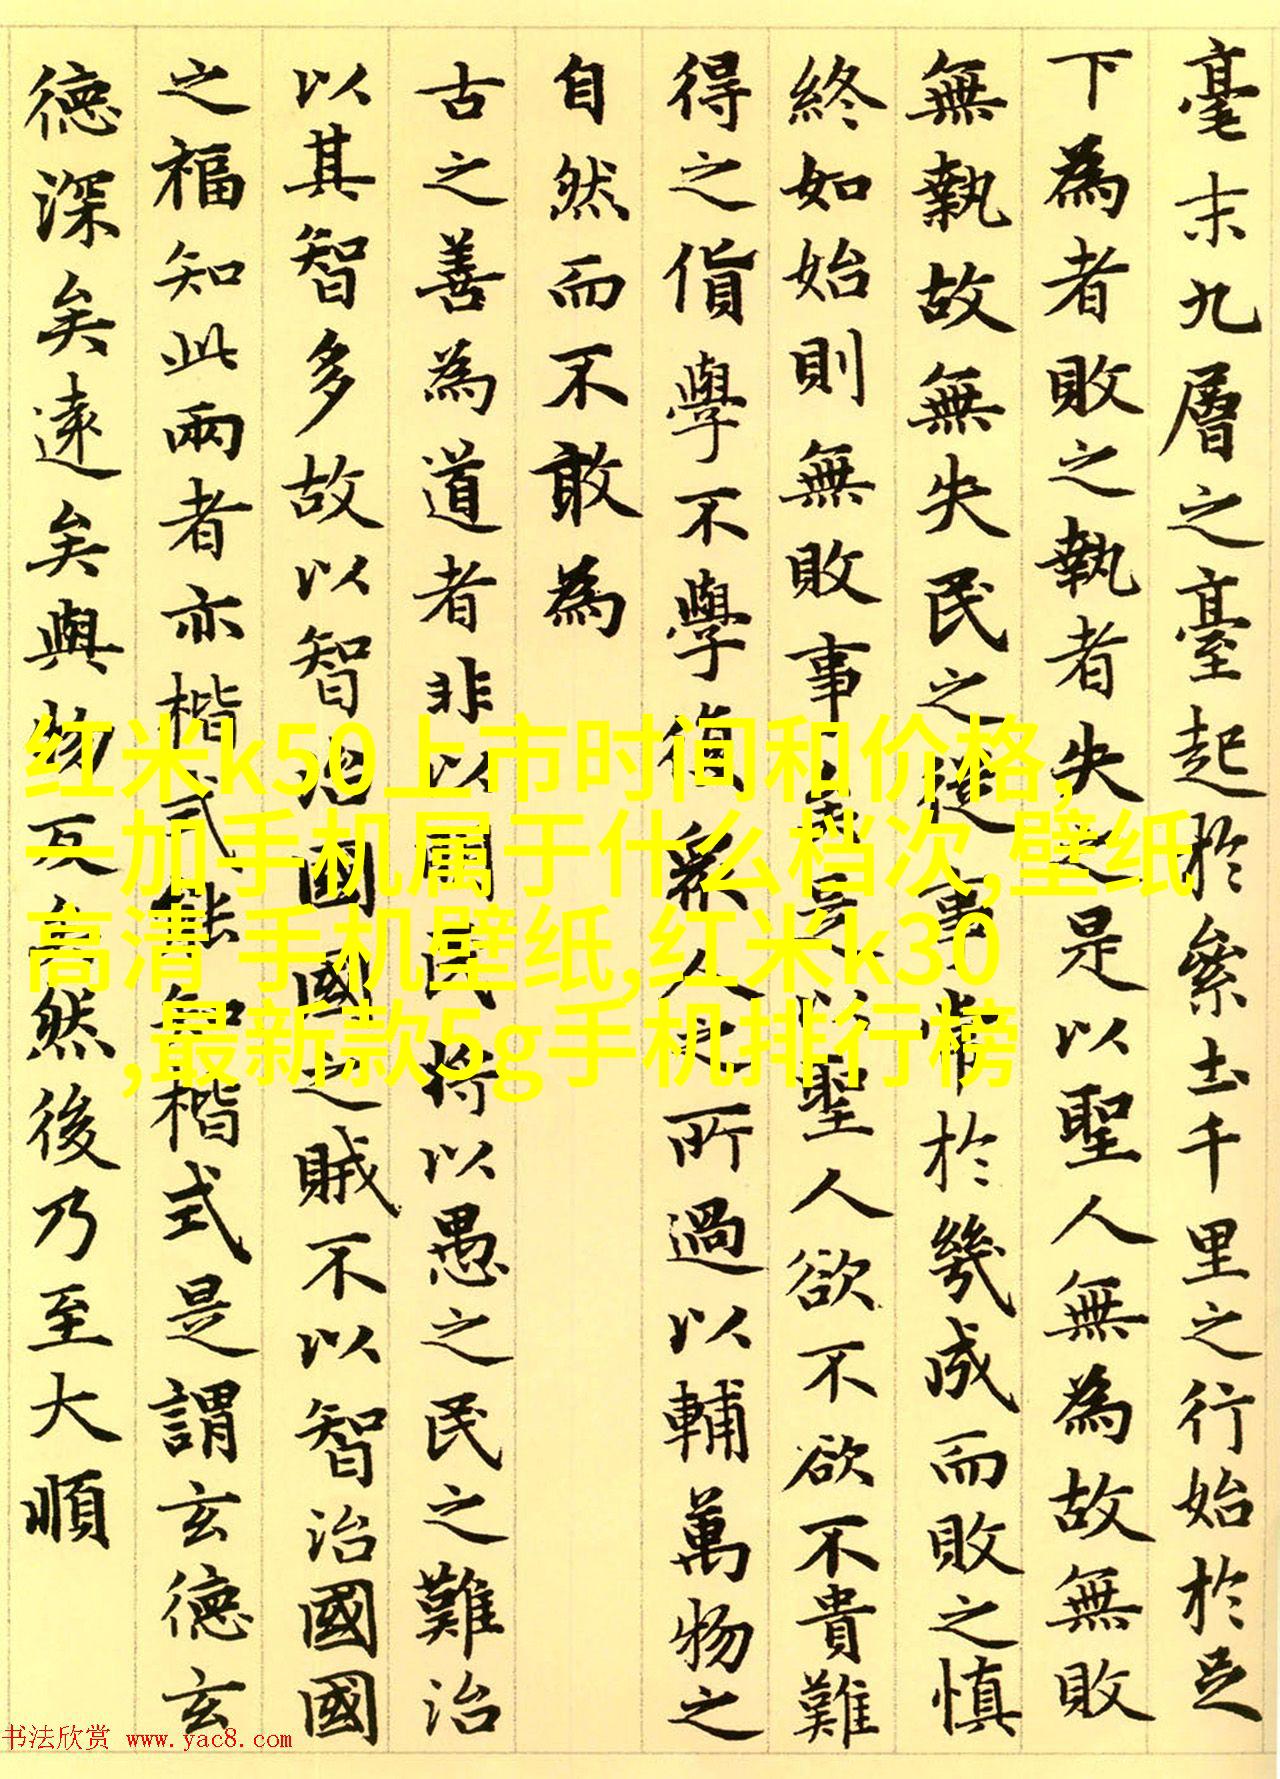 毫末九層之臺起於絫土千里之行始於足
下為者敗之執者失之是以聖人無為故無敗
無執故無失民之從事常於幾成而敗之慎
終如始則無敗事矣是以聖人欲不欲不貴難
得之貨學不學復衆人之所過以輔萬物之
自然而不敢為
古之善為道者非以明民將以愚之民之難治
以其智多故以智治國國之賊不以智治國國
之福知此兩者亦楷式能知楷式是謂玄德玄
德深矣遠矣與物反矣然後乃至大順
红米k50上市时间和价格,
一加手机属于什么档次,壁纸
高清 手机壁纸,红米k30
,最新款5g手机排行榜
书法欣赏 www.yac8.com